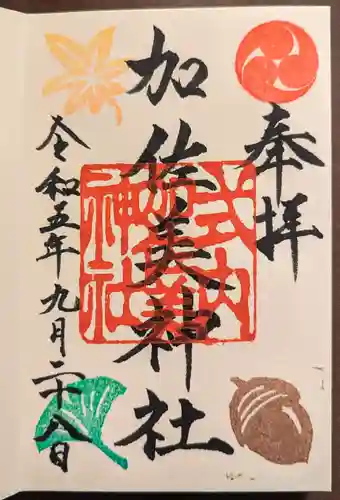 奉拝
加佐美神社
式内
加佐美
神社
令和五年九月二十八日